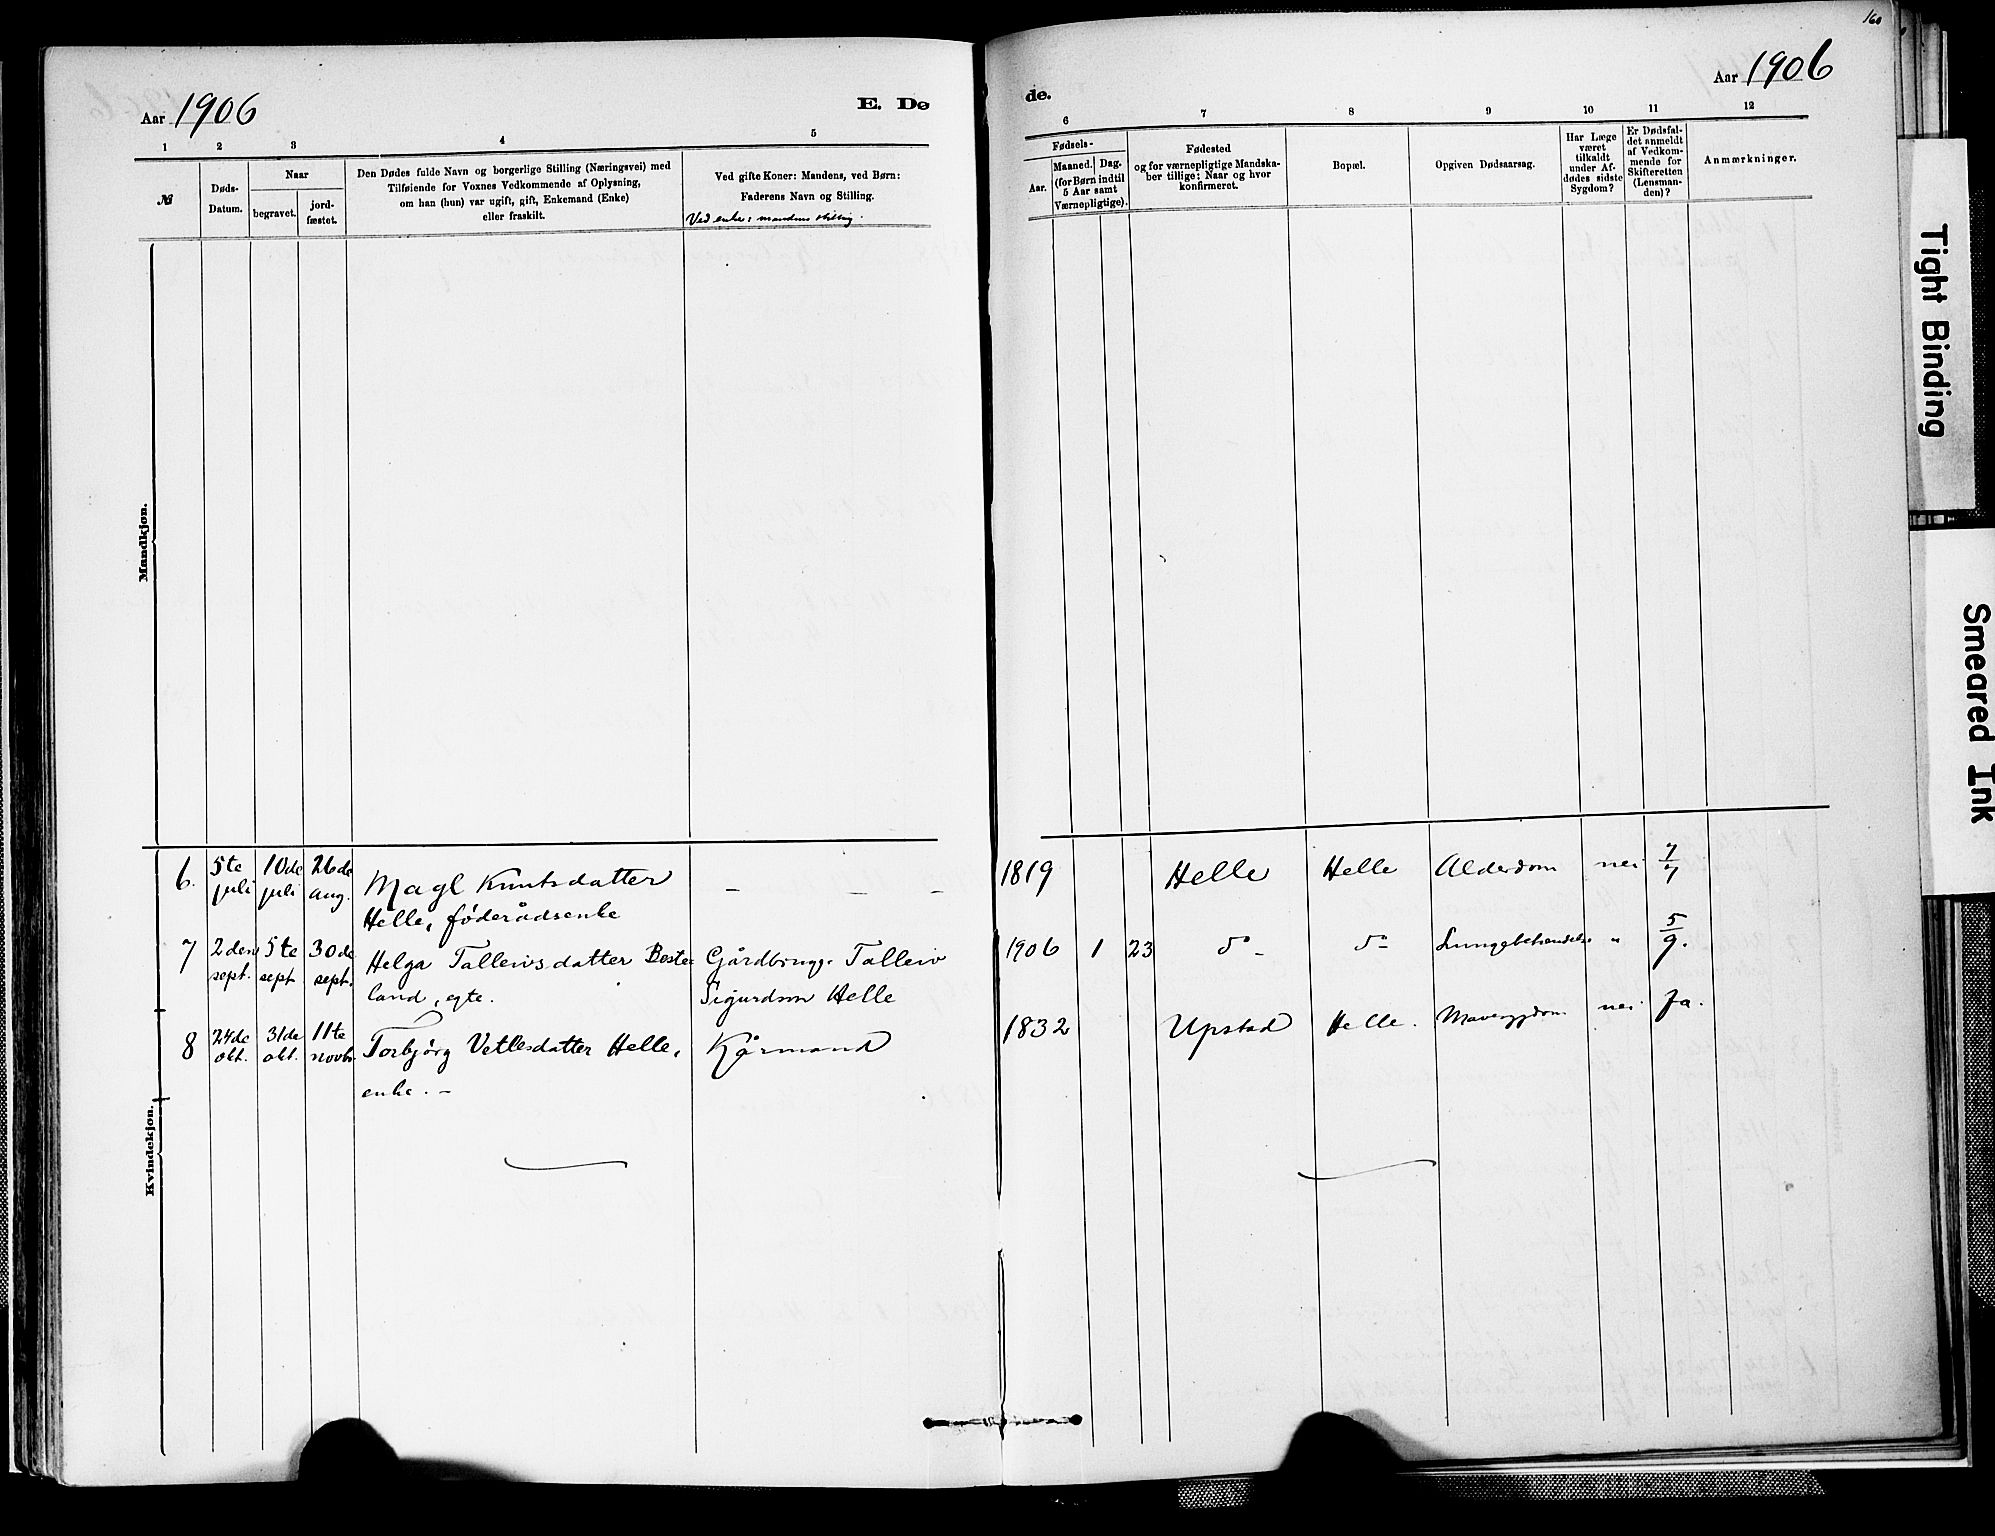 160
Aar 1906
E. Dø
de.
Aar 1906
1 2 3 4 5
6 7 8 9 10 11 12
№
Døds-
Datum.
Naar
begravet.
jord-
fæstet.
Den Dødes fulde Navn og borgerlige Stilling (Næringsvei) med
Tilføiende for Voxnes Vedkommende af Oplysning,
om han (hun) var ugift, gift, Enkemand (Enke)
eller fraskilt.
Ved gifte Koner: Mandens, ved Børn:
Faderens Navn og Stilling.
Ved enke: mandens stilling.
Fødsels-
Aar.
Maaned. Dag.
(for Børn indtil
5 Aar samt
Værnepligtige).
Fødested
og for værnepligtige Mandska-
ber tillige: Naar og hvor
konfirmeret.
Bopæl.
Opgiven Dødsaarsag.
Har Læge
været
tilkaldt
under Af-
dødes sidste
Sygdom?
Er Dødsfal-
det anmeldt
af Vedkom-
mende for
Skifteretten
(Lensman-
den)?
Anmærkninger.
Mandkjøn.
6. 5te juli 10de juli 26de aug. Magl Knutsdatter — — — 1819 Helle Helle Alderdom nei 7/7
Helle, føderådsenke
7 2den sept. 5te sept 30de sept. Helga Talleivsdatter Boste- Gårdbrug. Talleiv 1906 1 23 do- do- " 5/9.
land, egte. Sigurdson Helle
8 24de okt. 31de okt. 11te novbr. Torbjørg Vetlesdatter Helle, Kårmand 1832 Upstad Helle. Mavesygdom nei ja.
enke. —
Kvindekjøn.
Tight Binding
Smeared Ink